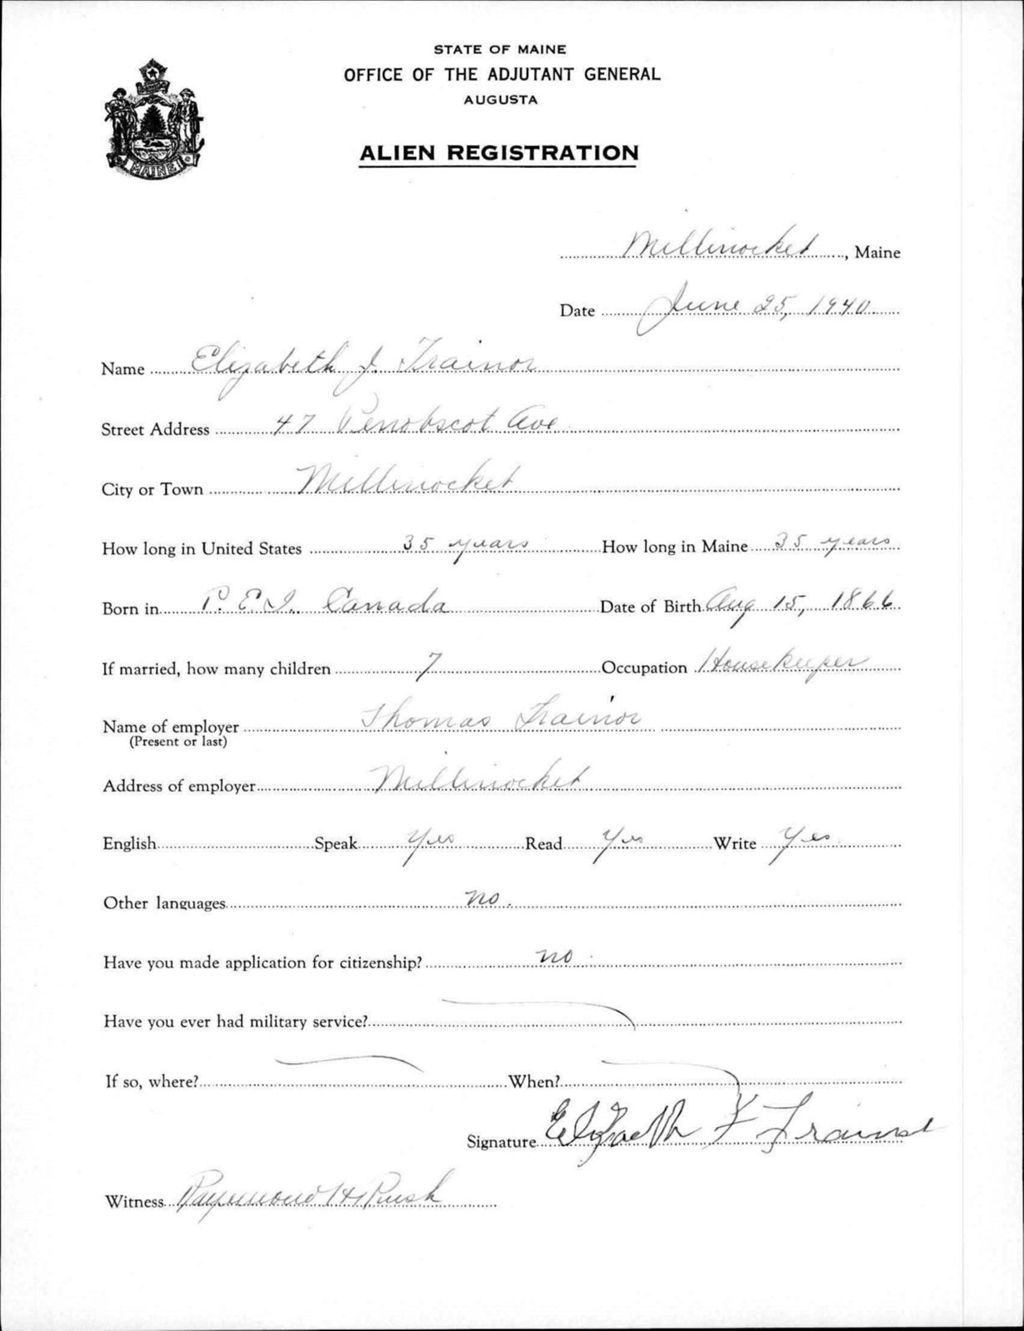 STATE OF MAINE
OFFICE OF THE ADJUTANT GENERAL
AUGUSTA
ALIEN REGISTRATION
MAINE
Millinocket, Maine
Date June 25, 1940
Name Elizabeth J. Trainor
Street Address 47 Penobscot Ave
City or Town Millinocket
How long in United States 35 years How long in Maine 35 years
Born in P.E.I. Canada Date of Birth Aug 15, 1866
If married, how many children 7 Occupation Housekeeper
Name of employer Thomas Trainor
(Present or last)
Address of employer Millinocket
English Speak Yes Read Yes Write Yes
Other languages no.
Have you made application for citizenship? no
Have you ever had military service?
If so, where? When?
Signature Trainor
Witness Raymond H Rush